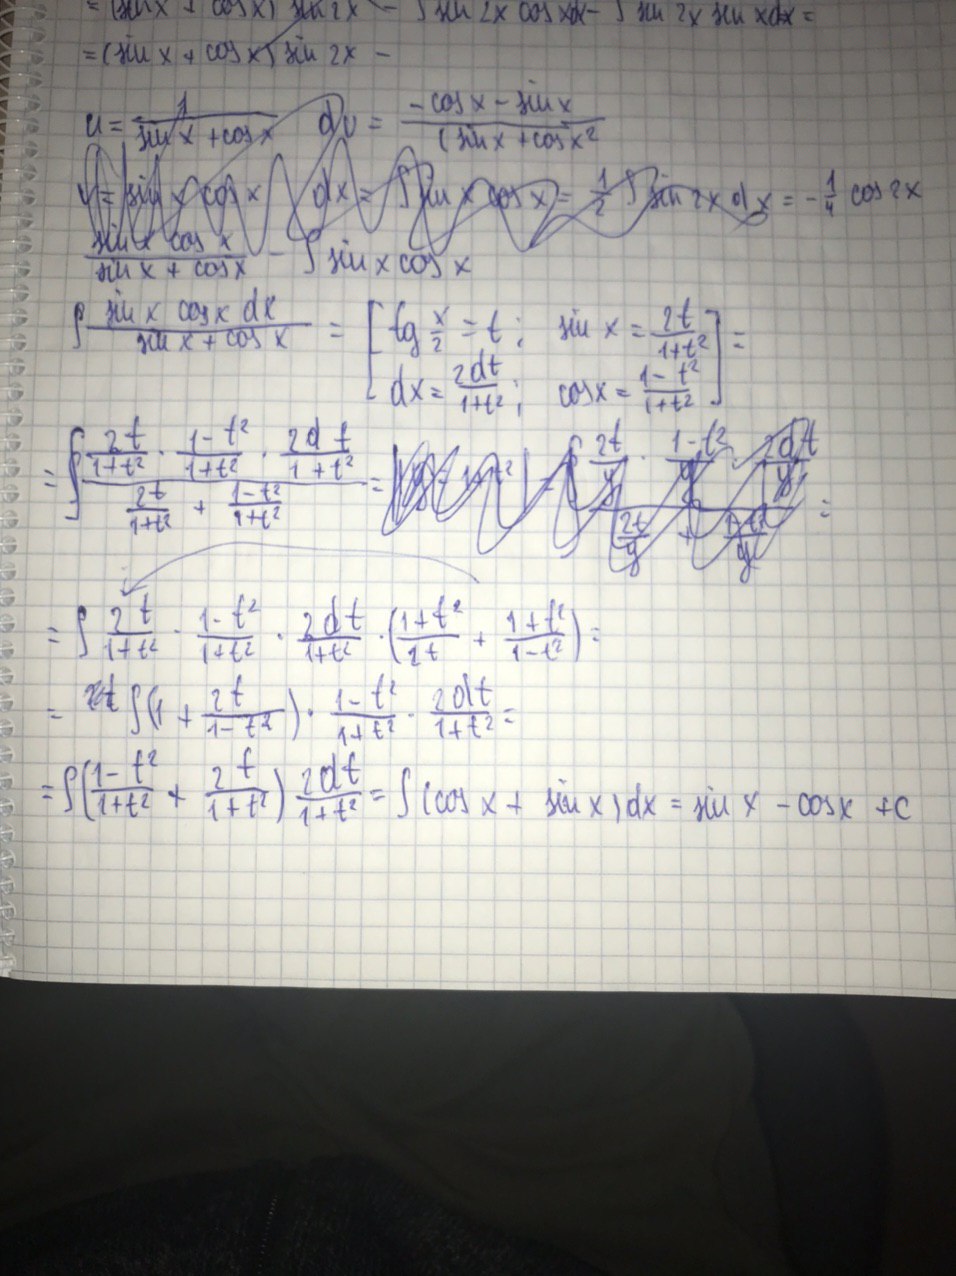 = (sin x + cos x) sin 2x - ∫ sin 2x cos xdx - ∫ sin 2x sin xdx =
= (sin x + cos x) sin 2x -
u = 1/(sin x + cos x) du = (-cos x - sin x)/(sin x + cos x²
V = sin x cos x dx = ∫ sin x cos x = 1/2 ∫ sin 2x dx = -1/4 cos 2x
(sin x cos x)/(sin x + cos x) - ∫ sin x cos x
∫ (sin x cos x dx)/(sin x + cos x) = [tg x/2 = t; sin x = 2t/(1+t²)
dx = 2dt/(1+t²); cos x = (1-t²)/(1+t²)] =
= ∫ (2t/(1+t²) · (1-t²)/(1+t²) · 2dt/(1+t²))/(2t/(1+t²) + (1-t²)/(1+t²)) = ∫ (2t/y · (1-t²)/y · 2dt/y)/(2t/y + (1-t²)/y) =
= ∫ 2t/(1+t²) · (1-t²)/(1+t²) · 2dt/(1+t²) · ((1+t²)/2t + (1+t²)/(1-t²)) =
= ∫ (1 + 2t/(1-t²)) · (1-t²)/(1+t²) · 2dt/(1+t²) =
= ∫ ((1-t²)/(1+t²) + 2t/(1+t²)) 2dt/(1+t²) = ∫ (cos x + sin x) dx = sin x - cos x + c